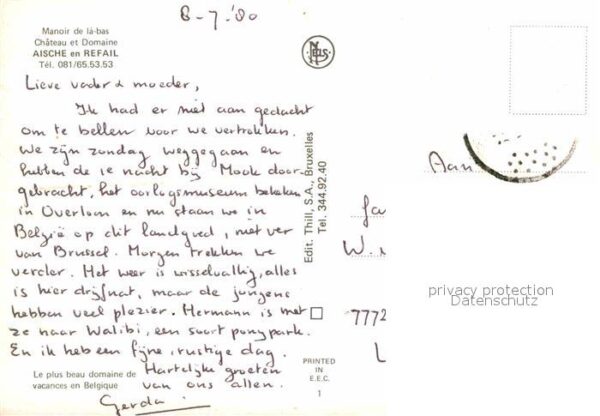 8-7-'80
Manoir de là-bas
Château et Domaine
AISCHE en REFAIL
Tél. 081/65.53.53
Lieve vader & moeder,
Ik had er niet aan gedacht
om te bellen voor we vertrokken.
We zijn zondag weggegaan en
hebben de 1e nacht bij Mook door-
gebracht, het oorlogsmuseum bekeken
in Overloon en nu staan we in
België op dit landgoed, niet ver
van Brussel. Morgen trekken we
verder. Het weer is wisselvallig, alles
is hier drijfnat, maar de jongens
hebben veel plezier. Hermann is met
ze naar Walibi, een soort ponypark.
En ik heb een fijne, rustige dag.
Hartelijke groeten
van ons allen.
Gerda
Le plus beau domaine de
vacances en Belgique
NELS
Edit. Thill, S.A., Bruxelles
Tel. 344.92.40
PRINTED
IN
E.E.C.
1
Aan
7772
privacy protection
Datenschutz